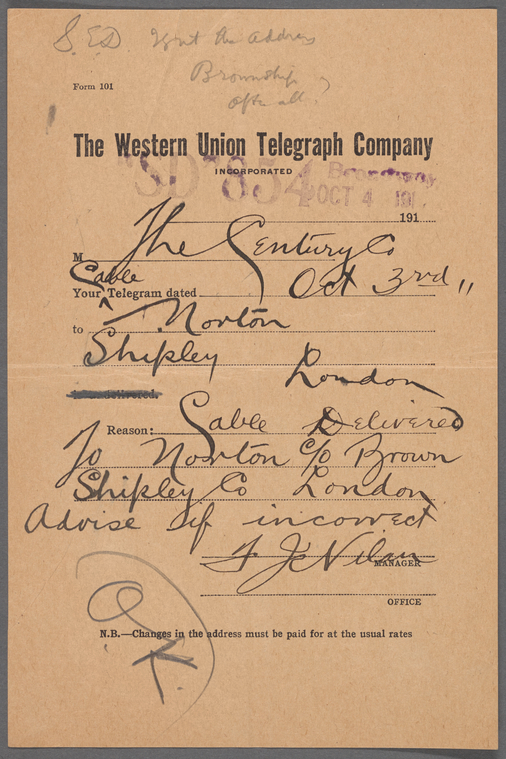 S.E.D the address
Brownship
after all.
Form 101
The Western Union Telegraph Company
INCORPORATED
"SD" 854 Broadway
OCT 4 191
191
M The Century Co
Cable
Your Telegram dated Oct 3rd "
to Norton
Shipley London
Reason: Cable Delivered
To Norton c/o Brown
Shipley Co London
Advise if incorrect
MANAGER
OFFICE
N.B.—Changes in the address must be paid for at the usual rates
OK.